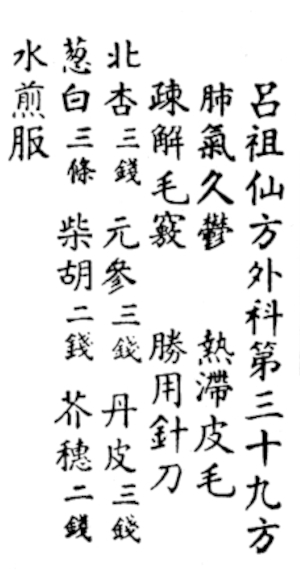 呂祖仙方外科第三十九方
肺氣久鬱 熱滯皮毛
疎解毛竅 勝用針刀
北杏三錢 元參三錢 丹皮三錢
葱白三條 柴胡二錢 芥穗二錢
水煎服